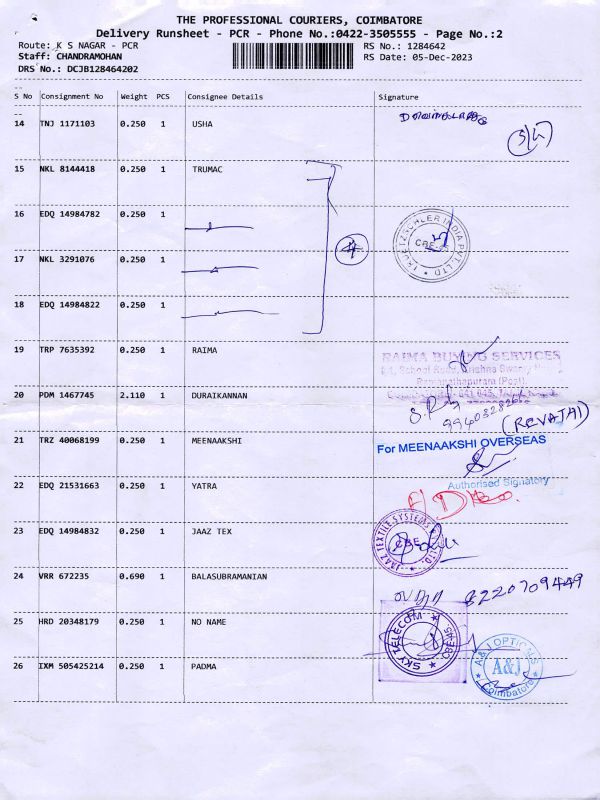 THE PROFESSIONAL COURIERS, COIMBATORE
Delivery Runsheet - PCR - Phone No.:0422-3505555 - Page No.:2
Route: K S NAGAR - PCR RS No.: 1284642
Staff: CHANDRAMOHAN RS Date: 05-Dec-2023
DRS No.: DCJB128464202
S No Consignment No Weight PCS Consignee Details Signature
14 TNJ 1171103 0.250 1 USHA
15 NKL 8144418 0.250 1 TRUMAC
16 EDQ 14984782 0.250 1
TRUETZSCHLER INDIA PVT. LTD
CBE
17 NKL 3291076 0.250 1
18 EDQ 14984822 0.250 1
19 TRP 7635392 0.250 1 RAIMA
RAIMA BUYING SERVICES
School Road, Krishna Swamy
Ramanathapuram (Post),
20 PDM 1467745 2.110 1 DURAIKANNAN
(REVATHI)
21 TRZ 40068199 0.250 1 MEENAAKSHI
For MEENAAKSHI OVERSEAS
Authorised Signatory
22 EDQ 21531663 0.250 1 YATRA
23 EDQ 14984832 0.250 1 JAAZ TEX
JAAZ TEXTILE SYSTEMS LTD.
CBE
24 VRR 672235 0.690 1 BALASUBRAMANIAN
8220709449
25 HRD 20348179 0.250 1 NO NAME
SKY TELECOM CBE-45
26 IXM 505425214 0.250 1 PADMA
A&J OPTICALS
A&J
Coimbatore